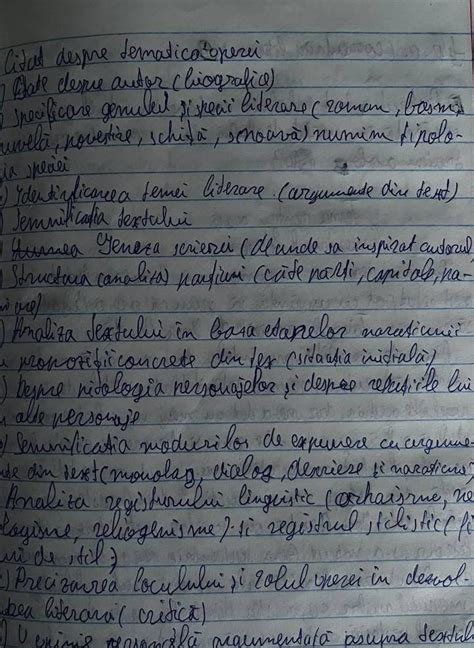 Citat despre tematica operei
) Date despre autor (biografice)
) specificare genului și speciei literare (roman, basm,
nuvelă, povestire, schiță, snoavă) numim tipolo-
ia speciei
) Identificarea temei literare (argumente din text)
) Semnificația textului
) Geneza scrierii (de unde sa inspirat autorul
) Structura (analiza) narațiunii (câte părți, capitole, na-
) Analiza textului în baza etapelor narațiunii
u propoziții concrete din tex (situația inițială)
) Despre tipologia personajelor și despre relațiile lui
u alte personaje
) Semnificația modurilor de expunere cu argume-
te din text (monolog, dialog, descriere și narațiune)
Analiza registrului lingvistic (arhaisme, ne
logisme, regionisme) și registrul stilistic (fi
uri de stil)
) Precizarea locului și rolul operei în dezvol-
tarea literară (critică)
) personală argumentată asupra textulu